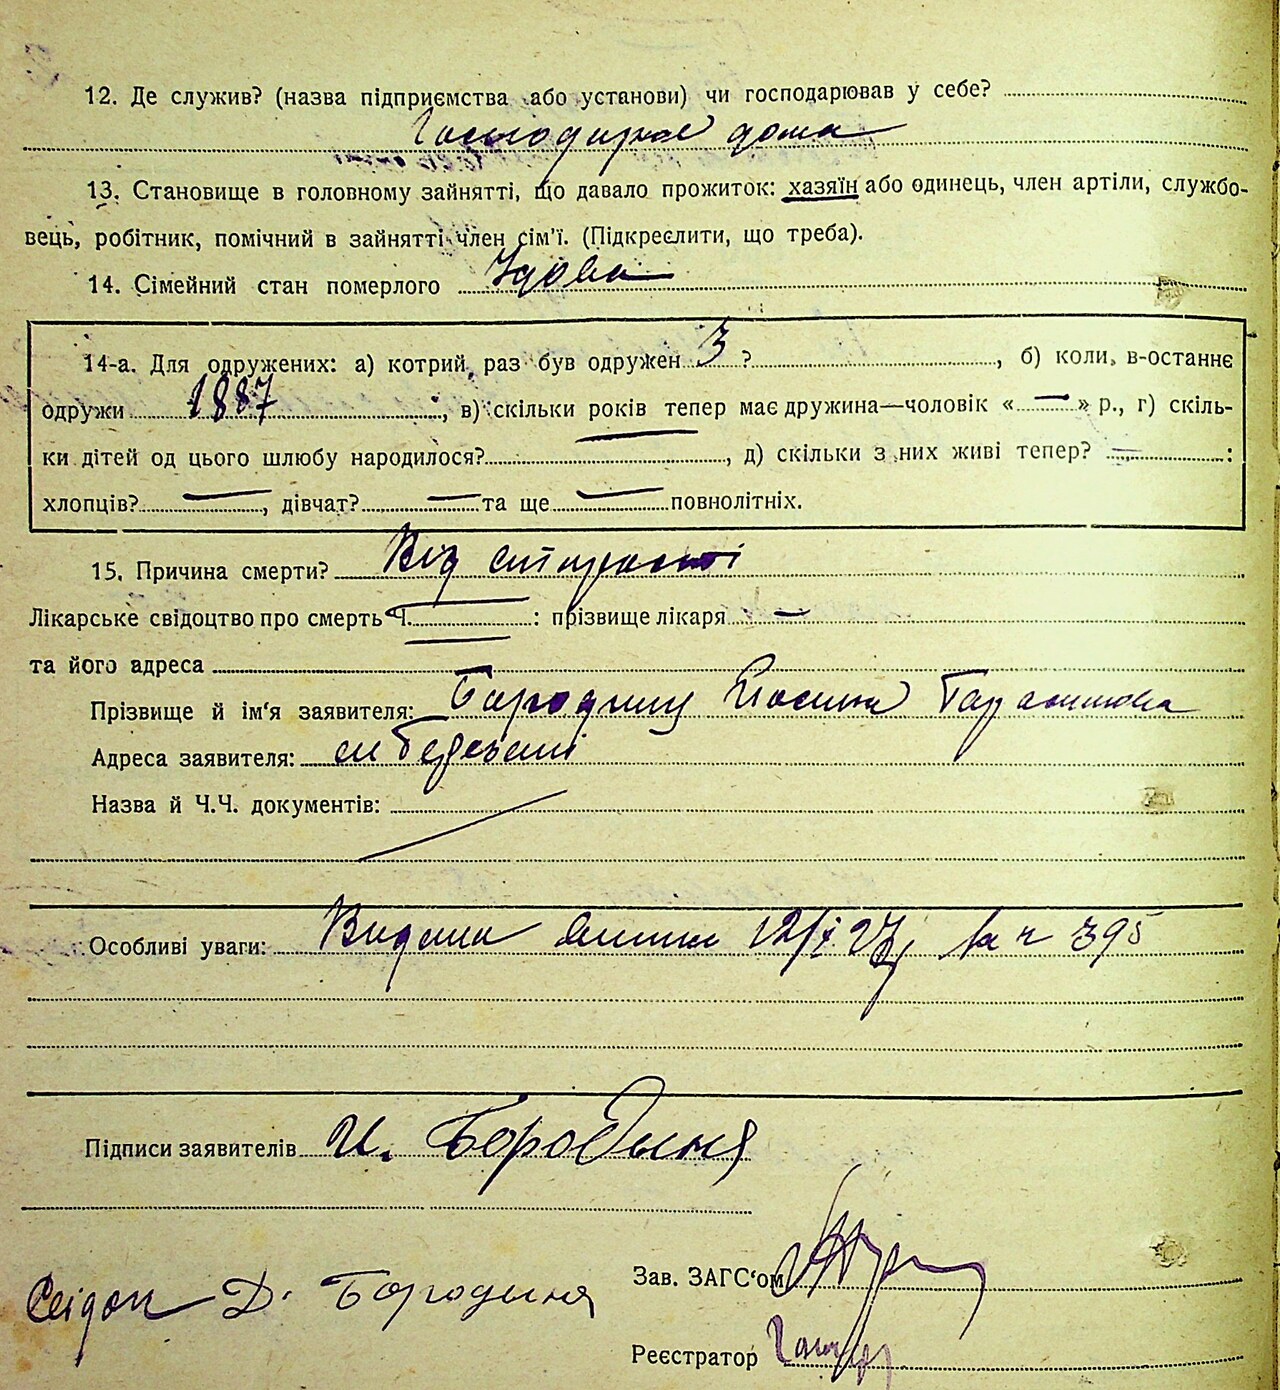 12. Де служив? (назва підприємства або установи) чи господарював у себе?
дома
13. Становище в головному зайнятті, що давало прожиток: хазяїн або одинець, член артіли, службо-
вець, робітник, помічний в зайнятті член сім'ї. (Підкреслити, що треба).
14. Сімейний стан померлого Удова
14-а. Для одружених: а) котрий раз був одружен 3 ?, б) коли в-останнє
одружи 1887, в) скільки років тепер має дружина—чоловік «—» р., г) скіль-
ки дітей од цього шлюбу народилося? —, д) скільки з них живі тепер? — :
хлопців? —, дівчат? — та ще — повнолітніх.
15. Причина смерти? Від старости
Лікарське свідоцтво про смерть Ч. — : прізвище лікаря —
та його адреса
Прізвище й ім'я заявителя:
Адреса заявителя:
Назва й Ч.Ч. документів:
Особливі уваги: Видана 12/X 27 за ч 395
Підписи заявителів И. Бородыня
Зав. ЗАГС'ом
Свідок Д. Бородыня
Реєстратор